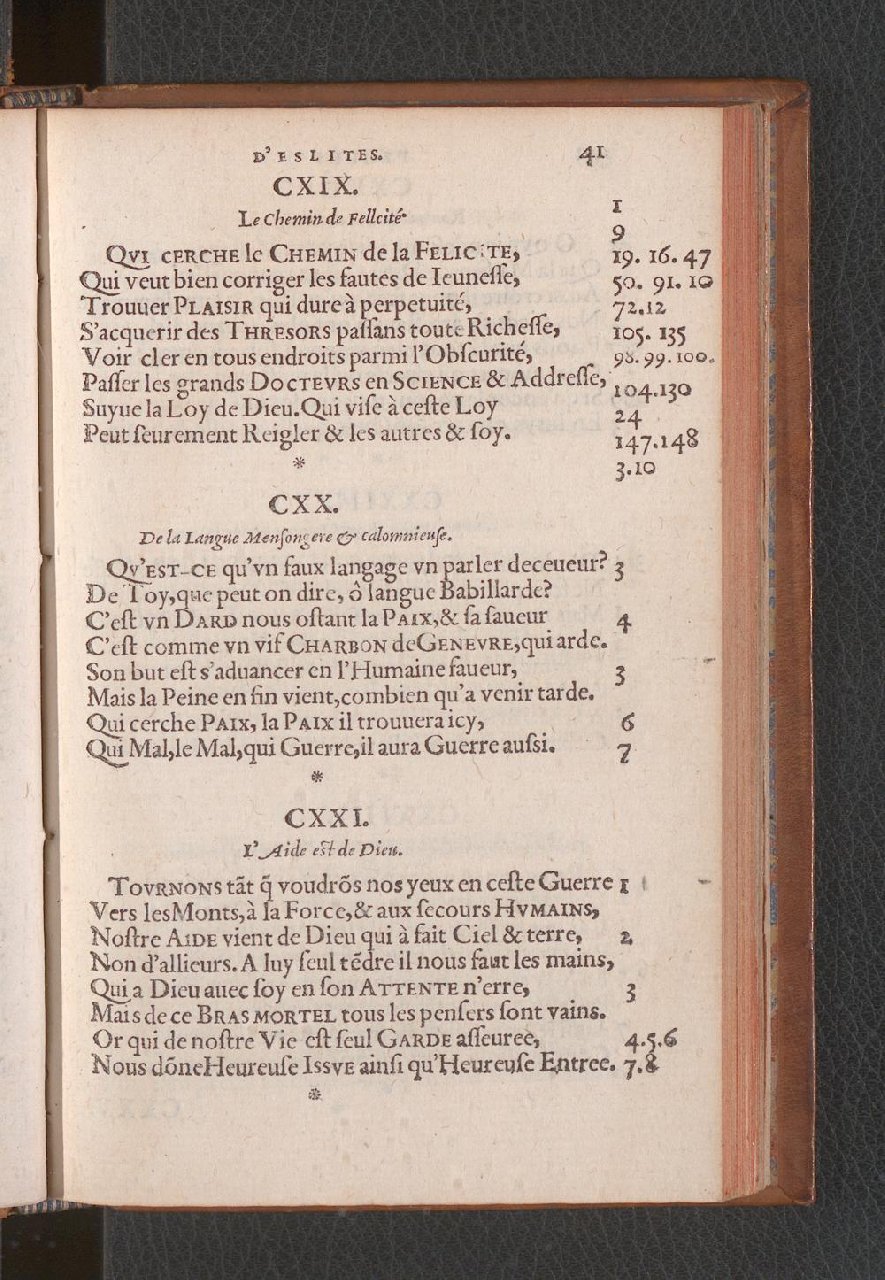 D'ESLITES. 41
CXIX.
Le Chemin de Fellcité· 1
9
QVI CERCHE le CHEMIN de la FELICITE, 19. 16. 47
Qui veut bien corriger les fautes de Ieunesſe, 50. 91. 10
Trouuer PLAISIR qui dure à perpetuité, 72.12
S'acquerir des THRESORS paſſans toute Richeſſe, 105. 135
Voir cler en tous endroits parmi l'Obſcurité, 98. 99. 100.
Paſſer les grands DOCTEVRS en SCIENCE & Addreſſe, 104.130
Suyue la Loy de Dieu. Qui viſe à ceſte Loy 24
Peut ſeurement Reigler & les autres & ſoy. 147.148
* 3.10
CXX.
De la Langue Menſongere & calomnieuſe.
QV'EST-CE qu'vn faux langage vn parler deceueur? 3
De Toy,que peut on dire, ô langue Babillarde?
C'eſt vn DARD nous oſtant la PAIX,& ſa faueur 4
C'eſt comme vn vif CHARBON de GENEVRE,qui arde.
Son but eſt s'aduancer en l'Humaine faueur, 3
Mais la Peine en fin vient,combien qu'a venir tarde.
Qui cerche PAIX, la PAIX il trouuera icy, 6
Qui Mal,le Mal,qui Guerre,il aura Guerre auſsi. 7
*
CXXI.
L'Aide eſt de Dieu.
TOVRNONS tãt q̃ voudrõs nos yeux en ceſte Guerre 1
Vers les Monts,à la Force,& aux ſecours HVMAINS,
Noſtre AIDE vient de Dieu qui à fait Ciel & terre, 2
Non d'allieurs. A luy ſeul tẽdre il nous faut les mains,
Qui a Dieu auec ſoy en ſon ATTENTE n'erre, 3
Mais de ce BRAS MORTEL tous les penſers ſont vains.
Or qui de noſtre Vie eſt ſeul GARDE aſſeuree, 4.5.6
Nous dõne Heureuſe ISSVE ainſi qu'Heureuſe Entree. 7.8
*